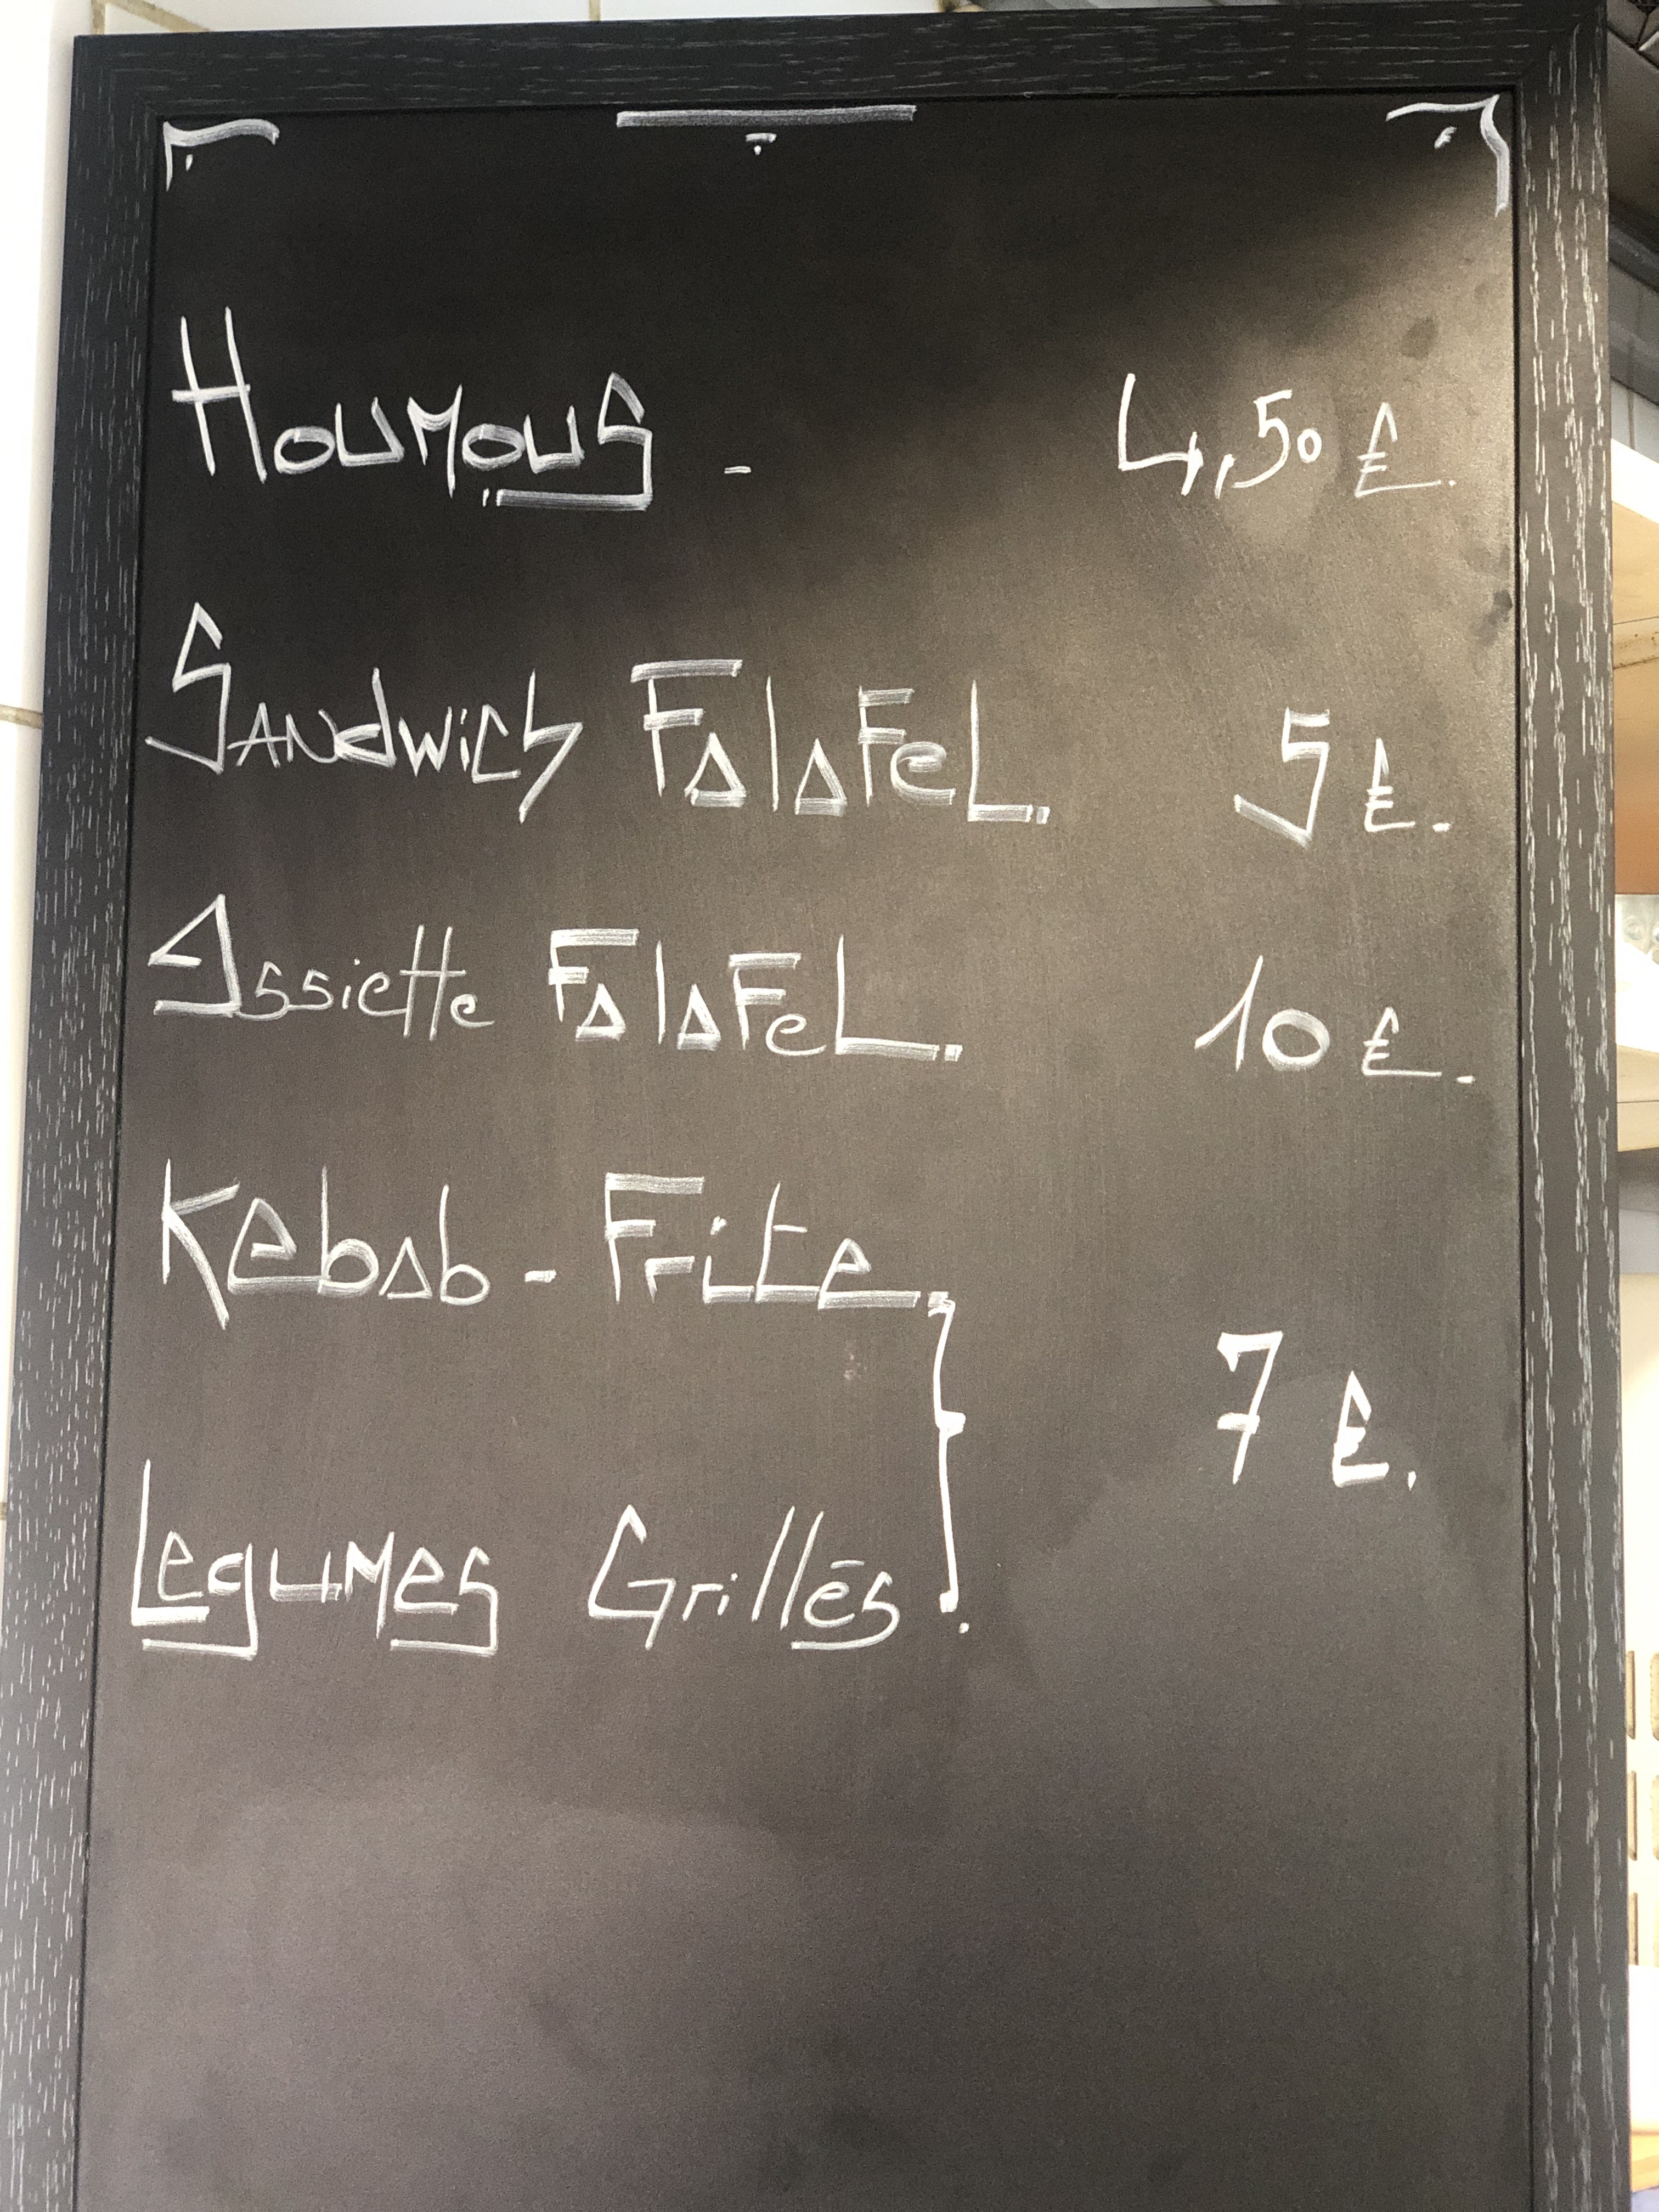 Houmous - 4,50 €.
Sandwich Falafel. 5 €.
Assiette Falafel. 10 €.
Kebab - Frite.
7 €.
Legumes Grillés.